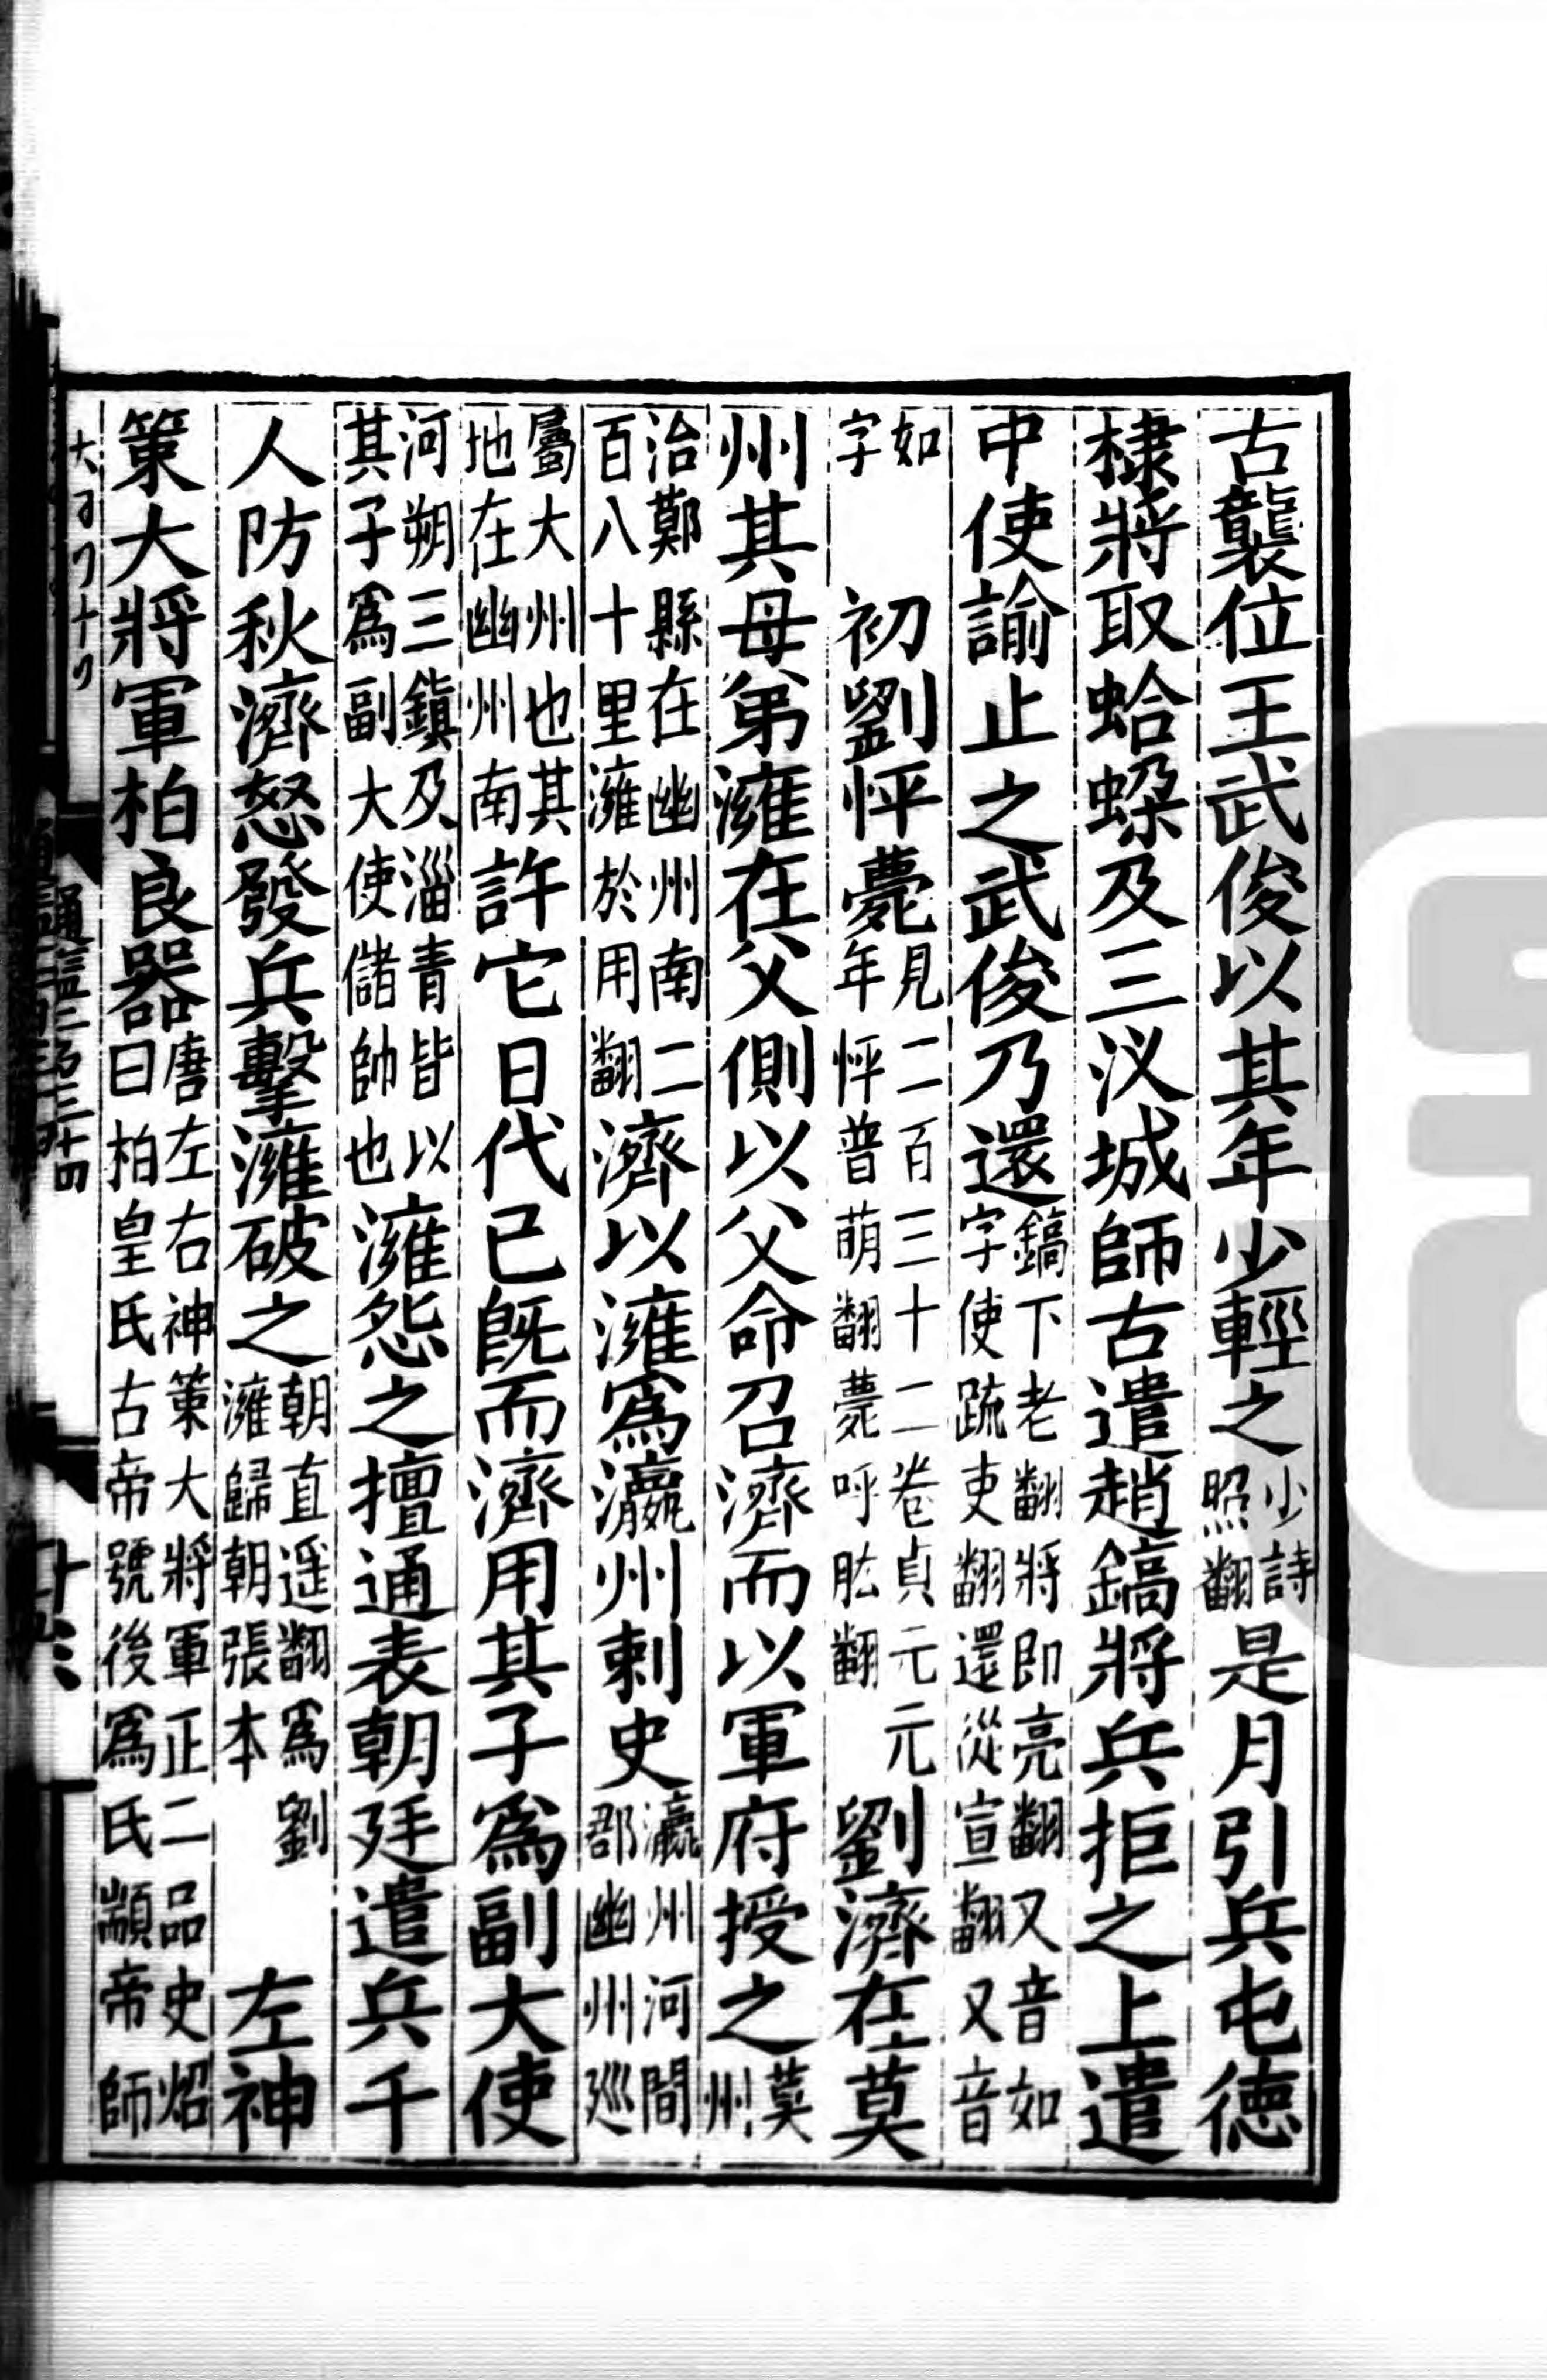 古襲位王武俊以其年少輕之少詩照翻是月引兵屯德
棣將取蛤𧎴及三汊城師古遣趙鎬將兵拒之上遣
中使諭止之武俊乃還鎬下老翻將即亮翻又音如字使疏吏翻還從宣翻又音
如字　初劉怦薨見二百三十二卷貞元元年怦普萌翻薨呼肱翻　劉濟在莫
州其母弟澭在父側以父命召濟而以軍府授之莫州
治鄭縣在幽州南二百八十里澭於用翻濟以澭爲瀛州刺史瀛州河間郡幽州廵
屬大州也其地在幽州南許它日代已既而濟用其子爲副大使
河朔三鎮及淄青皆以其子爲副大使儲帥也澭怨之擅通表朝廷遣兵千
人防秋濟怒發兵擊澭破之朝直遥翻爲劉澭歸朝張本　左神
策大將軍柏良器唐左右神策大將軍正二品史炤曰柏皇氏古帝號後爲氏顓帝師